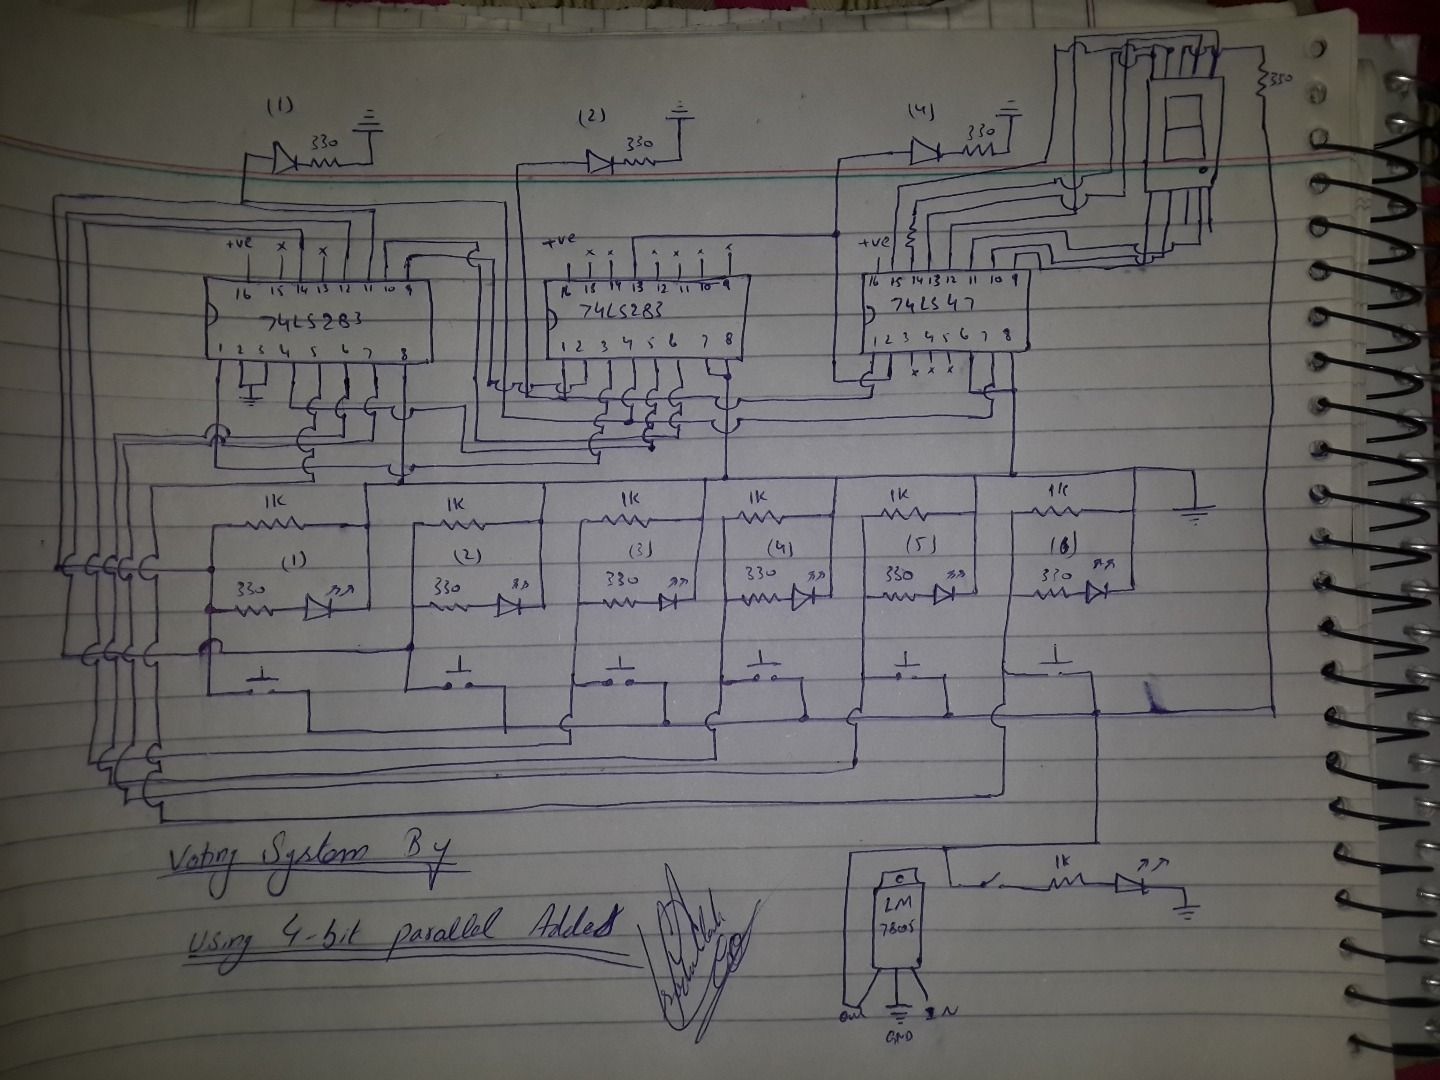 (1)
(2)
(4)
330
330
330
330
+ve x x
+ve x x x x x x
+ve
16 15 14 13 12 11 10 9
16 15 14 13 12 11 10 9
16 15 14 13 12 11 10 9
74LS283
74LS283
74LS47
1 2 3 4 5 6 7 8
1 2 3 4 5 6 7 8
1 2 3 4 5 6 7 8
x x x
1K 1K 1K 1K 1K 1K
(1) (2) (3) (4) (5) (6)
330 330 330 330 330 330
Voting System By
using 4-bit parallel Adder
1K
LM
7805
Out IN
GND